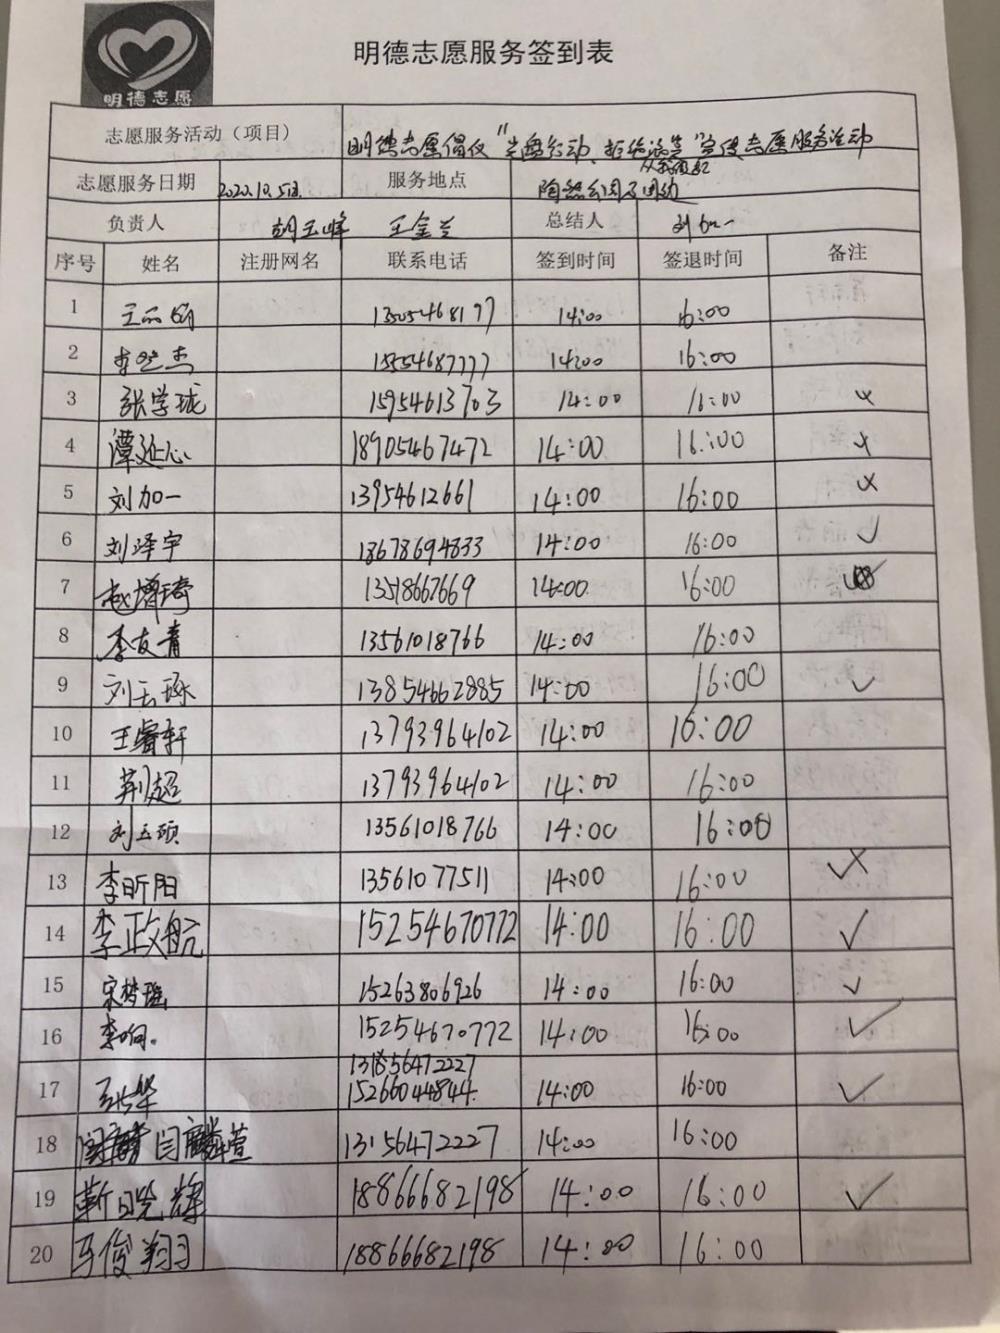 明德志愿
明德志愿服务签到表
志愿服务活动（项目） 明德志愿倡仪"光盘行动、拒绝浪费"宣传志愿服务活动
从我做起
志愿服务日期 2020.10.5日 服务地点 陶然公园及周边
负责人 胡玉峰 王金兰 总结人 刘加一
序号 姓名 注册网名 联系电话 签到时间 签退时间 备注
1 13505468197 14:00 16:00
2 14:00 16:00
3 张学珑 15954613703 14:00 16:00 ×
4 潭延心 18905467472 14:00 16:00 ×
5 刘加一 13954612661 14:00 16:00 ×
6 刘泽宇 13678694833 14:00 16:00 ✓
7 赵增琦 14:00 16:00 ✓
8 李友青 13561018766 14:00 16:00
9 刘玉琢 13854662885 14:00 16:00 ✓
10 王睿轩 13793964102 14:00 16:00
11 荆超 13793964102 14:00 16:00
12 刘玉硕 13561018766 14:00 16:00
13 李昕阳 13561077511 14:00 16:00 ✓×
14 李政航 15254670772 14:00 16:00 ✓
15 宋梦瑶 15263806926 14:00 16:00 ✓
16 李响 15254670772 14:00 16:00 ✓
17 131856472227
15266044844 14:00 16:00 ✓
18 闫麟萱 13156472227 14:00 16:00
19 靳晓辉 18866682198 14:00 16:00 ✓
20 马俊翔 18866682198 14:00 16:00